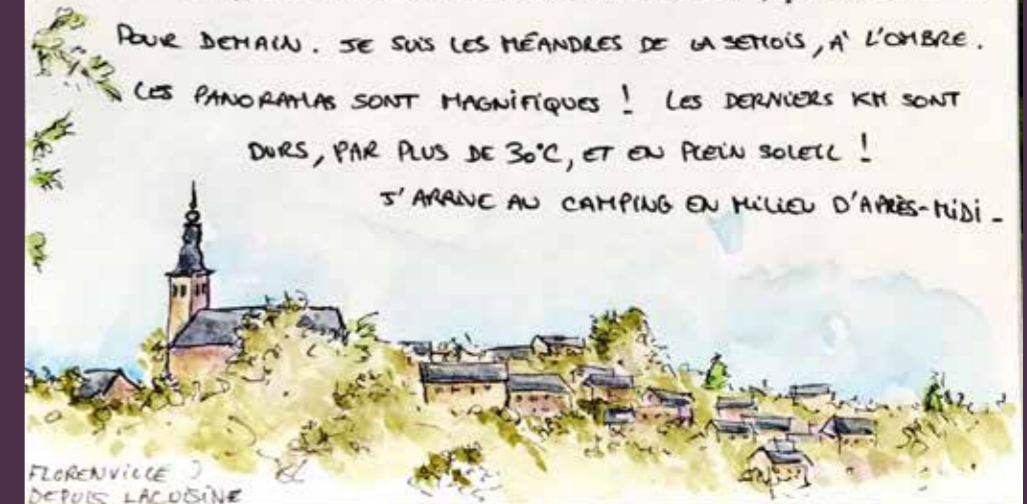 POUR DEMAIN. JE SUIS LES MÉANDRES DE LA SEMOIS, À L'OMBRE.
LES PANORAMAS SONT MAGNIFIQUES ! LES DERNIERS KM SONT
DURS, PAR PLUS DE 30°C, ET EN PLEIN SOLEIL !
J'ARRIVE AU CAMPING EN MILIEU D'APRÈS-MIDI -
FLORENVILLE
DEPUIS LACUISINE